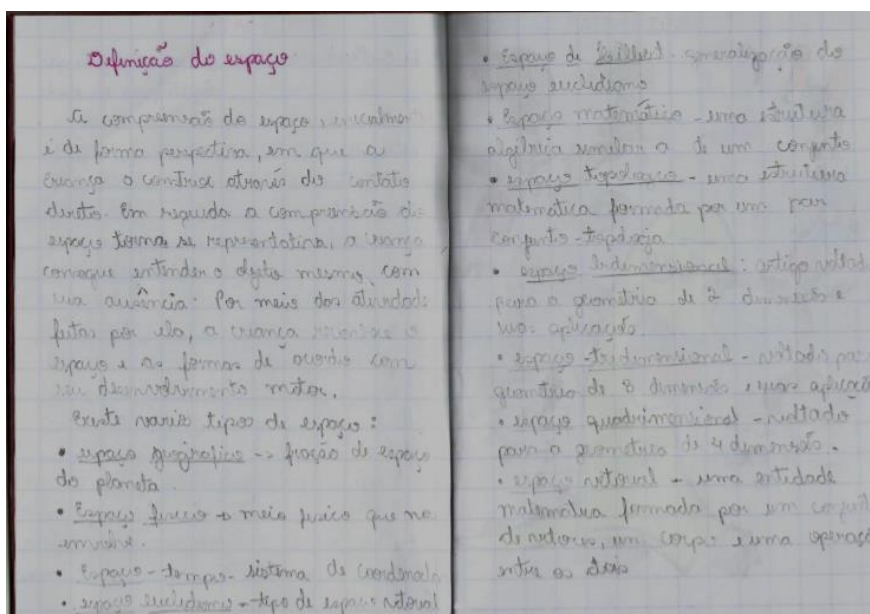 Definição do espaço
A compreensão do espaço, inicialmen
é de forma perspectiva, em que a
criança o constroe através do contato
direto. Em seguida a compreensão do
espaço torna se representativa, a criança
consegue entender o objeto mesmo com
sua ausência. Por meio das atividade
feitas por ela, a criança reconhece o
espaço e as formas de acordo com
seu desenvolvimento motor.
Existe varios tipos de espaço:
• espaço geografico -> fração de espaço
do planeta.
• Espaço fisico -> meio fisico que no
envolve.
• Espaço-tempo- sistema de coordenada
• espaço euclidiano - tipo de espaço vetorial
• Espaço de Hilbert - generalização do
espaço euclidiano
• Espaço matemático - uma estrutura
algébrica similar a de um conjunto
• espaço topologico - uma estrutura
matemática formada por um par
conjunto-topologia
• espaço bidimensional: artigo voltad
para a geometria de 2 dimensão e
suas aplicação
• espaço-tridimensional - voltado par
geometria de 3 dimensão e suas aplicaçõ
• espaço quadrimensional - voltado
para a geometrica de 4 dimensão.
• espaço vetorial - uma entidade
matematica formada por um conjunt
de vetores, um corpo e uma operaçõ
entre os dois